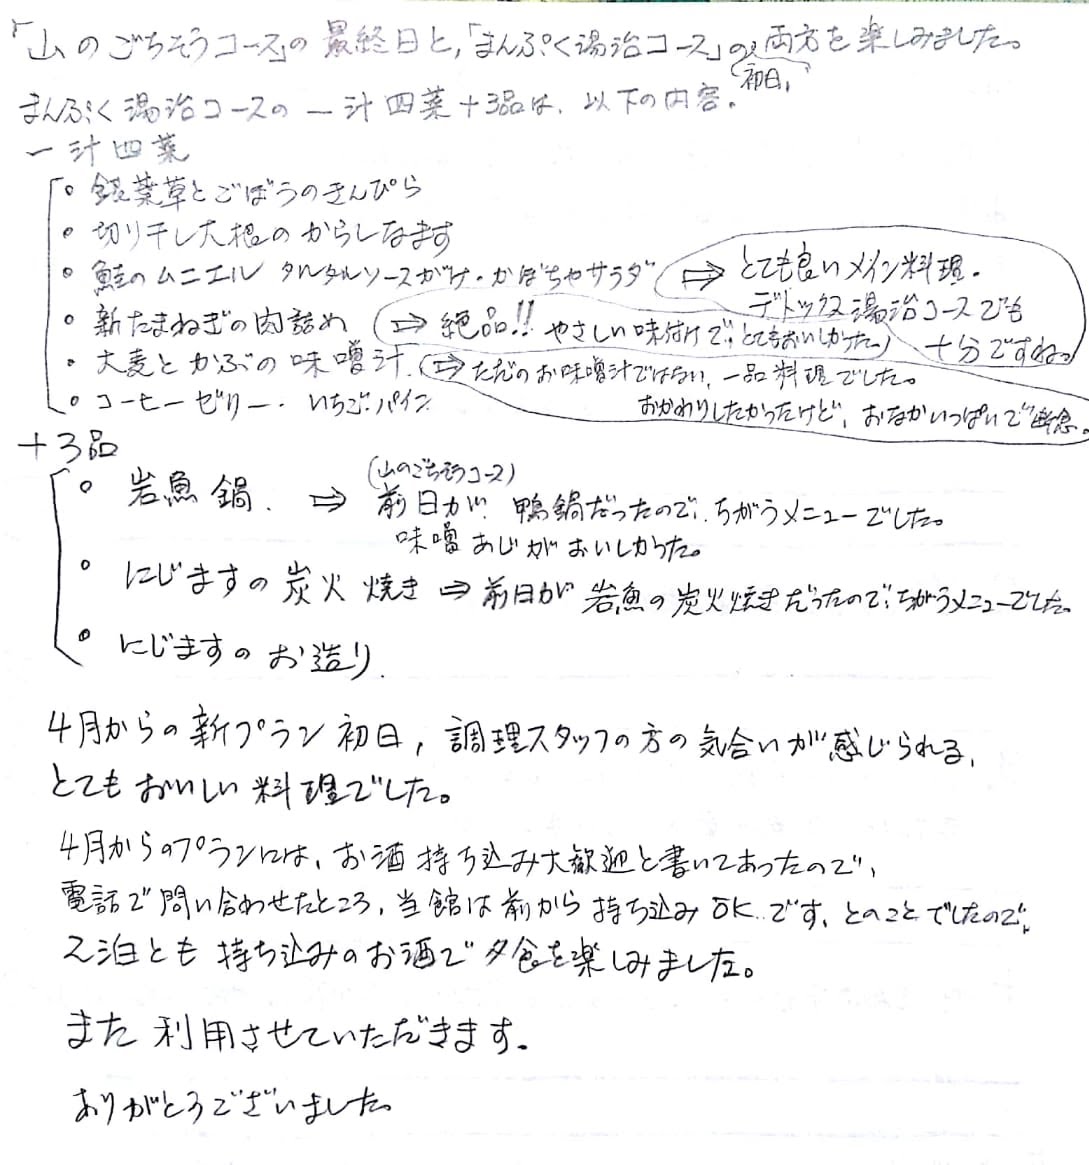 「山のごちそうコース」の最終日と、「まんぷく湯治コース」の初日、両方を楽しみました。
まんぷく湯治コースの一汁四菜+3品は、以下の内容。
一汁四菜
・銀葉草とごぼうのきんぴら
・切り干し大根のからしなます
・鮭のムニエル タルタルソースがけ・かぼちゃサラダ ⇒ とても良いメイン料理。
デトックス湯治コースでも
十分ですね。
・新たまねぎの肉詰め ⇒ 絶品!! やさしい味付けで、とてもおいしかった。
・大麦とかぶの味噌汁. ⇒ ただのお味噌汁ではない、一品料理でした。
おかわりしたかったけど、おなかいっぱいで断念。
・コーヒーゼリー・いちご・パイン
+3品
・岩魚鍋. ⇒ 前日が(山のごちそうコース)鴨鍋だったので、ちがうメニューでした。
味噌あじがおいしかった。
・にじますの炭火焼き ⇒ 前日が岩魚の炭火焼きだったので、ちがうメニューでした。
・にじますのお造り.
4月からの新プラン初日、調理スタッフの方の気合いが感じられる、
とてもおいしい料理でした。
4月からのプランには、お酒持ち込み大歓迎と書いてあったので、
電話で問い合わせたところ、当館は前から持ち込みOKです、とのことでしたので、
2泊とも持ち込みのお酒で夕食を楽しみました。
また利用させていただきます.
ありがとうございました。